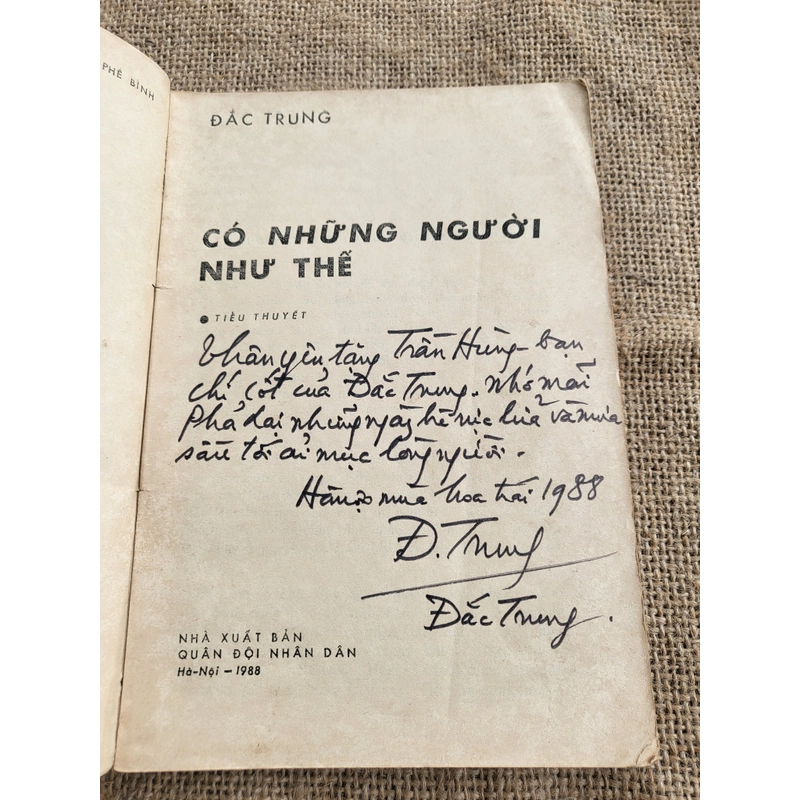 PHÊ BÌNH
ĐẮC TRUNG
CÓ NHỮNG NGƯỜI
NHƯ THẾ
TIỂU THUYẾT
Thân yêu tặng Trần Hùng - bạn
chí cốt của Đắc Trung. nhớ mãi
Phả Lại những ngày hè rực lửa và mưa
sầu tối ải mục lòng người.
Hà nội mùa hoa trái 1988
Đ. Trung
Đắc Trung.
NHÀ XUẤT BẢN
QUÂN ĐỘI NHÂN DÂN
Hà-Nội — 1988